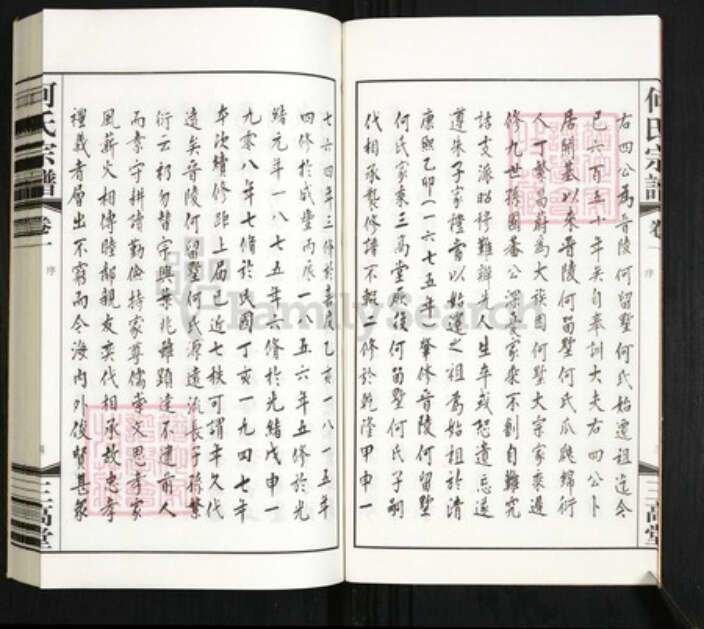 何氏宗譜
卷一
序
三高堂
右四公為晉陵何留墅何氏始遷祖迄今
已六百五十年矣自奉訓大夫右四公卜
居開基以來晉陵何留墅何氏瓜瓞錦衍
人丁繁昌蔚為大族因何墅大宗家乘邊
修九世孫國蓁公深家乘不創自難究
詰支派昭穆難辯先人生卒或恐遺忘遠
遵朱子家禮當以始遷之祖為始祖於清
康熙乙卯(一六七五年)肇修晉陵何留墅
何氏家乘三高堂厥後何留墅何氏子嗣
代相承襲修譜不輟二修於乾隆甲申一
七六四年三修於嘉慶乙亥一八一五年
四修於咸豐丙辰一八五六年五修於光
緒元年一八七五年六修於光緒戊申一
九零八年七修於民國丁亥一九四七年
本次續修距上屆已近七秩可謂年久代
遠矣晉陵何留墅何氏源遠流長子孫繁
衍云礽勿替宇興業兆雖顯達不遺前人
而常守耕讀勤儉持家尊儒崇文思孝家
風薪火相傳睦鄰親友奕代相承故忠孝
禮義者層出不窮而今海內外俊賢甚眾
何氏宗譜
卷一
序
三高堂
FamilySearch